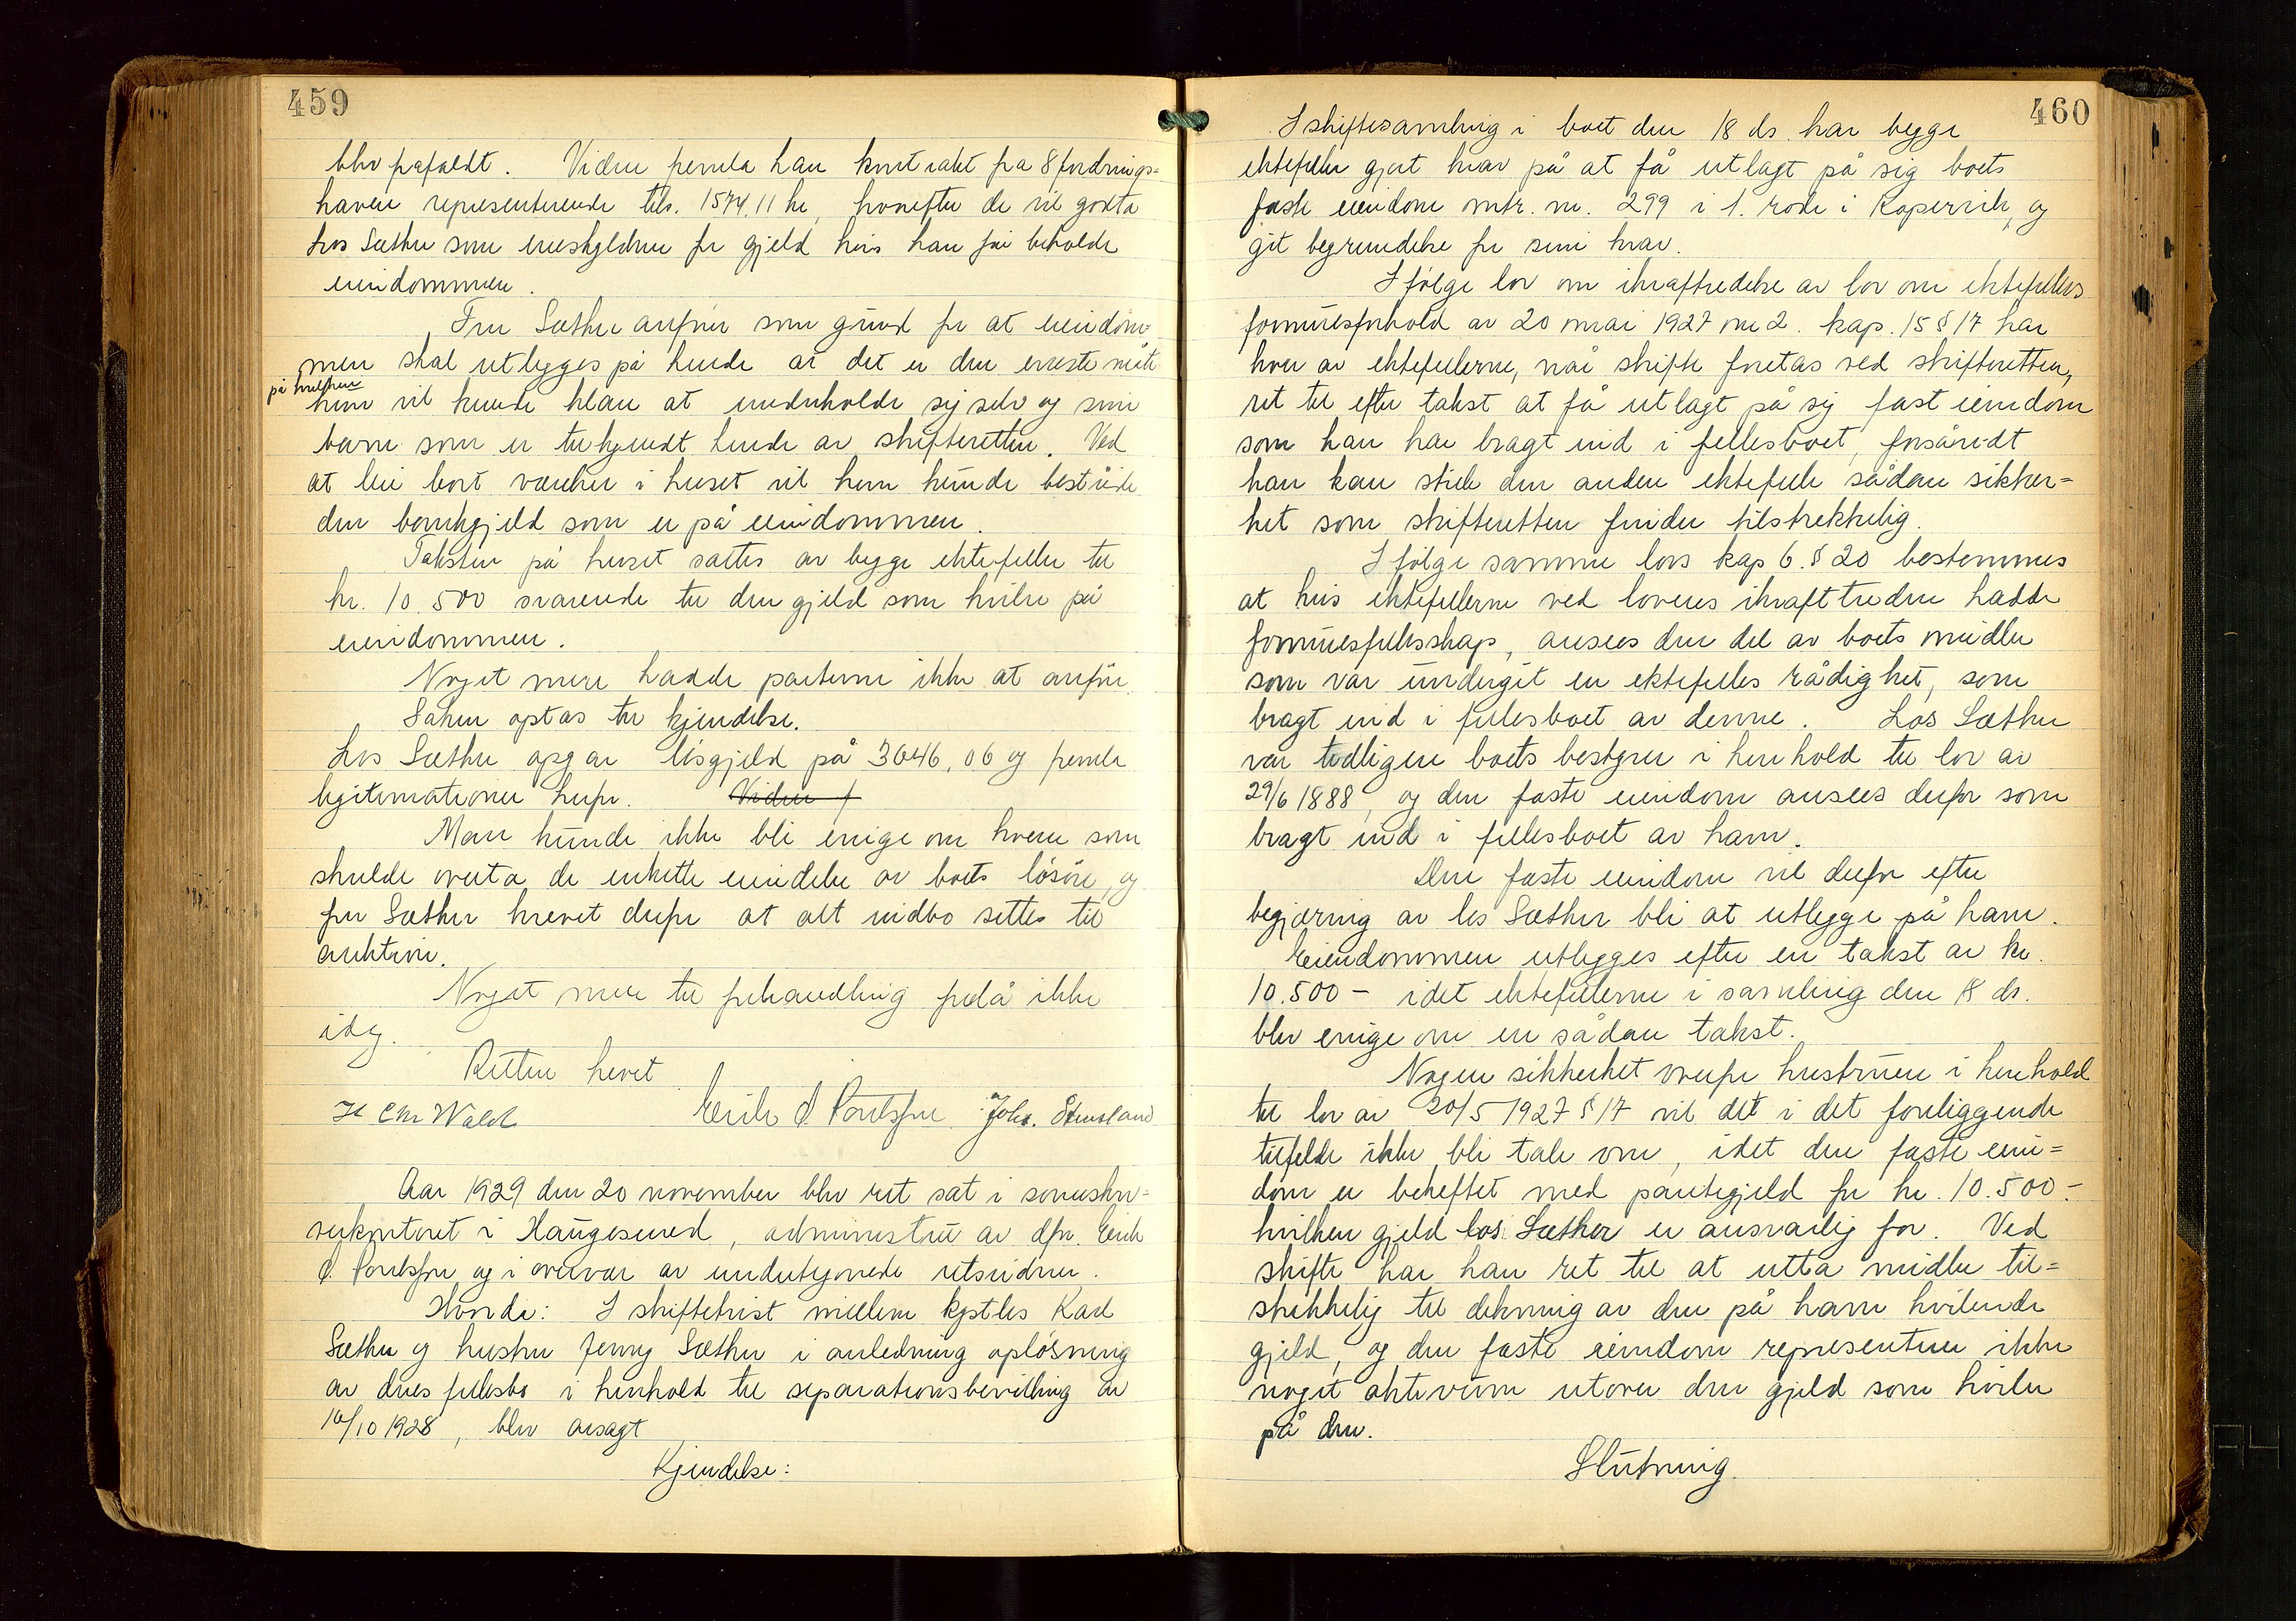 459
blev påfaldt. Videre fremla han kontrakt fra 8 fordrings=
havere representerende tils. 1574,11 kr, hvorefter de vil godta
Los Sæther som eneskyldner for gjeld hvis han får beholde
eiendommen.
Fru Sæther anfører som grund for at eiendom-
men skal utlegges på hende at det er den eneste måte
på hvilken
hun vil kunde klare at underholde sig selv og sine
barn som er tilkjendt hende av skifteretten. Ved
at leie bort værelser i huset vil hun kunde bestride
den bankgjeld som er på eiendommen.
Taksten på huset sattes av begge ektefeller til
kr. 10.500 svarende til den gjeld som hviler på
eiendommen.
Noget mere hadde parterne ikke at anføre.
Saken optas til kjendelse.
Los Sæther opgav løsgjeld på 3646,06 og fremla
legitimationer herfor. Videre f
Man kunde ikke bli enige om hvem som
skulde overta de enkelte eiendeler av boets løsøre, og
fru Sæther krevet derfor at alt indbo settes til
auktion.
Noget mere til behandling forelå ikke
idag.
Retten hevet
H Chr Wald Erik O. Poulsson Johs. Stensland
Aar 1929 den 20 november blev ret sat i sorenskri=
verkontoret i Haugesund, administrert av dfm. Erik
O. Poulsson og i overvær av undertegnede retsvidner.
Hvorda: I skiftetvist mellem kystlos Karl
Sæther og hustru Jenny Sæther i anledning opløsning
av deres fellesbo i henhold til separationsbevilling av
16/10 1928, blev avsagt
Kjendelse:
460
I skiftesamling i boet den 18 ds. har begge
ektefeller gjort krav på at få utlagt på sig boets
faste eiendom mtr. nr. 299 i 1. rode i Kopervik, og
git begrundelse for sine krav.
Ifølge lov om ikrafttredelse av lov om ektefellers
formuesforhold av 20 mai 1927 nr 2. kap. 15 § 17 har
hver av ektefellerne, når skifte foretas ved skifteretten,
ret til efter takst at få utlagt på sig fast eiendom
som han har bragt ind i fellesboet, forsåvidt
han kan stille den anden ektefelle sådan sikker=
het som skifteretten finder tilstrekkelig.
Ifølge samme lovs kap 6. § 20 bestemmes
at hvis ektefellerne ved lovens ikrafttreden hadde
formuesfellesskap, ansees den del av boets midler
som var undergit en ektefelles rådighet, som
bragt ind i fellesboet av denne. Los Sæther
var tidligere boets bestyrer i henhold til lov av
29/6 1888, og den faste eiendom ansees derfor som
bragt ind i fellesboet av ham.
Den faste eiendom vil derfor efter
begjæring av los Sæther bli at utlegge på ham.
Eiendommen utlegges efter en takst av kr.
10.500 - idet ektefellerne i samling den 18 ds.
blev enige om en sådan takst.
Nogen sikkerhet overfor hustruen i henhold
til lov av 20/5 1927 § 17 vil det i det foreliggende
tilfelde ikke bli tale om, idet den faste eien=
dom er beheftet med pantegjeld for kr. 10.500.-
hvilken gjeld los Sæther er ansvarlig for. Ved
skifte har han ret til at utta midler til=
strekkelig til dekning av den på ham hvilende
gjeld, og den faste eiendom representerer ikke
noget aktivum utover den gjeld som hviler
på den.
Slutning.